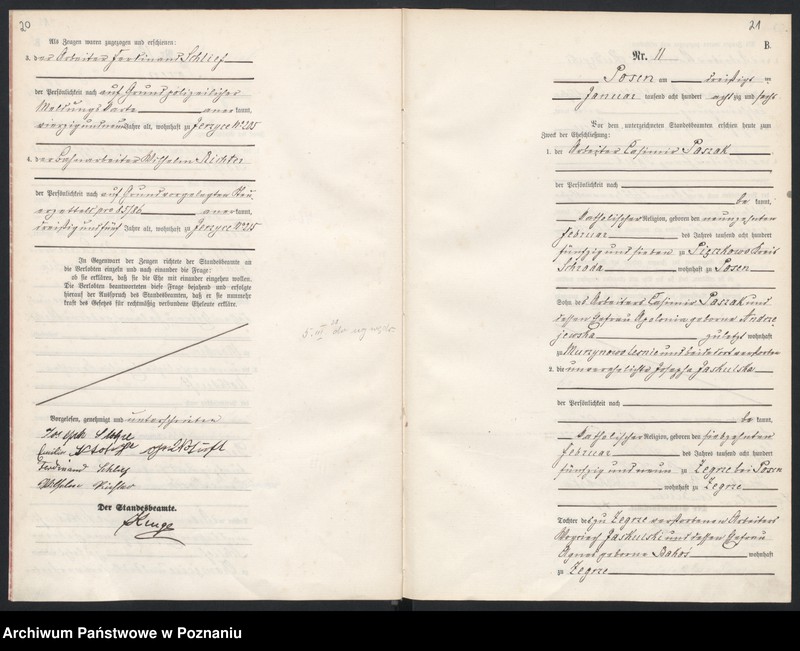 20
Als Zeugen waren zugezogen und erschienen:
3. der Arbeiter Ferdinand Schleif
der Persönlichkeit nach auf Grund polizeilicher
Meldungs Karte anerkannt,
vierzig und neun Jahre alt, wohnhaft zu Jerzyce No 215
4. der Bahnarbeiter Wilhelm Richter
der Persönlichkeit nach auf Grund vorgelegten Steu-
erzettels pro 85/86 anerkannt,
dreißig und fünf Jahre alt, wohnhaft zu Jerzyce No 215
In Gegenwart der Zeugen richtete der Standesbeamte an
die Verlobten einzeln und nach einander die Frage:
ob sie erklären, daß sie die Ehe mit einander eingehen wollen.
Die Verlobten beantworteten diese Frage bejahend und erfolgte
hierauf der Ausspruch des Standesbeamten, daß er sie nunmehr
kraft des Gesetzes für rechtmäßig verbundene Eheleute erkläre.
Vorgelesen, genehmigt und unterschrieben
Ferdinand Schleif
Wilhelm Richter
Der Standesbeamte.
21
B.
Nr. 11
Posen am dreißigsten
Januar tausend acht hundert achtzig und sechs
Vor dem unterzeichneten Standesbeamten erschien heute zum
Zweck der Eheschließung:
1. der Arbeiter Casimir Paszak
der Persönlichkeit nach
be kannt,
katholischer Religion, geboren den neunzehnten
Februar des Jahres tausend acht hundert
fünfzig und sieben zu Pięczkowo Kreis
Schroda wohnhaft zu Posen
Sohn des Arbeiters Casimir Paszak und
dessen Ehefrau Apolonia geborene Andrze-
jewska zuletzt wohnhaft
zu Murzynowo lesnie und beide dort verstorben
2. die unverehelichte Josepha Jaskulska
der Persönlichkeit nach
be kannt,
katholischer Religion, geboren den siebzehnten
Februar des Jahres tausend acht hundert
fünfzig und neun zu Zegrze bei Posen
wohnhaft zu Zegrze
Tochter des zu Zegrze verstorbenen Arbeiters
Jaskulski und dessen Ehefrau
Agnes geborene wohnhaft
zu Zegrze
Archiwum Państwowe w Poznaniu